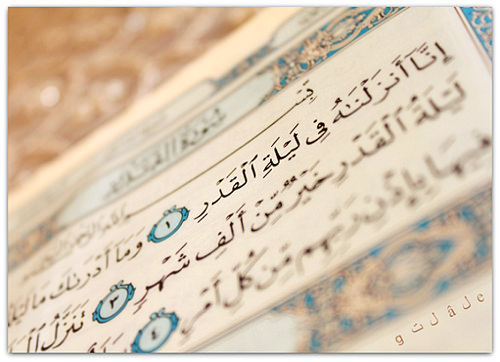 سُورَةُ الْقَدْرِ
إِنَّآ أَنزَلْنَٰهُ فِى لَيْلَةِ ٱلْقَدْرِ ١ وَمَآ أَدْرَىٰكَ مَا
لَيْلَةُ ٱلْقَدْرِ خَيْرٌ مِّنْ أَلْفِ شَهْرٍ ٣ تَنَزَّلُ
فِيهَا بِإِذْنِ رَبِّهِم مِّن كُلِّ أَمْرٍ ٤